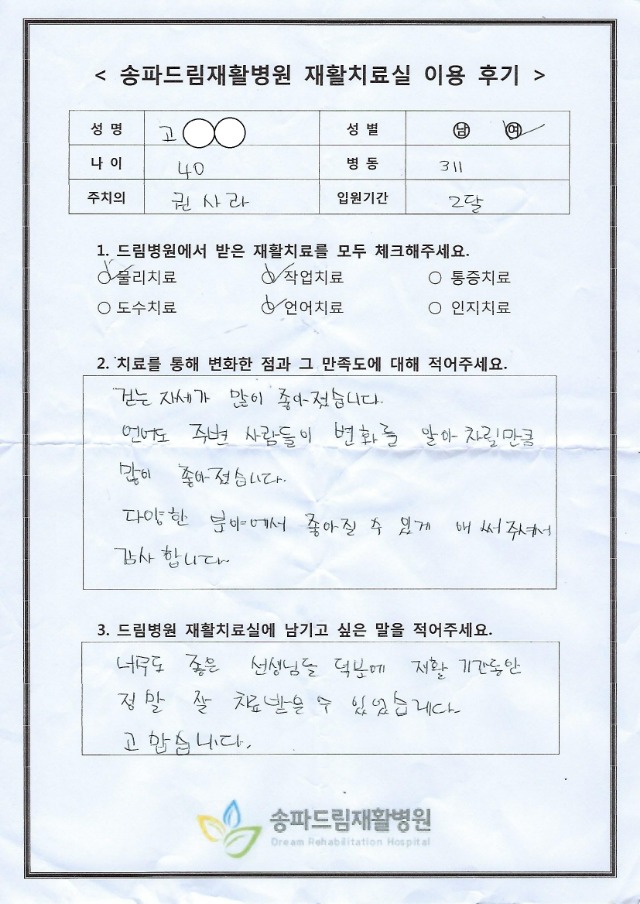 < 송파드림재활병원 재활치료실 이용 후기 >
성 명 고○○ 성 별 남 여
나 이 40 병 동 311
주치의 권사라 입원기간 2달
1. 드림병원에서 받은 재활치료를 모두 체크해주세요.
○ 물리치료 ○ 작업치료 ○ 통증치료
○ 도수치료 ○ 언어치료 ○ 인지치료
2. 치료를 통해 변화한 점과 그 만족도에 대해 적어주세요.
걷는 자세가 많이 좋아졌습니다.
언어도 주변 사람들이 변화를 알아 차릴만큼
많이 좋아졌습니다.
다양한 분야에서 좋아질 수 있게 애써주셔서
감사합니다.
3. 드림병원 재활치료실에 남기고 싶은 말을 적어주세요.
너무도 좋은 선생님들 덕분에 재활 기간동안
정말 잘 치료받을 수 있었습니다.
고맙습니다.
송파드림재활병원
Dream Rehabilitation Hospital